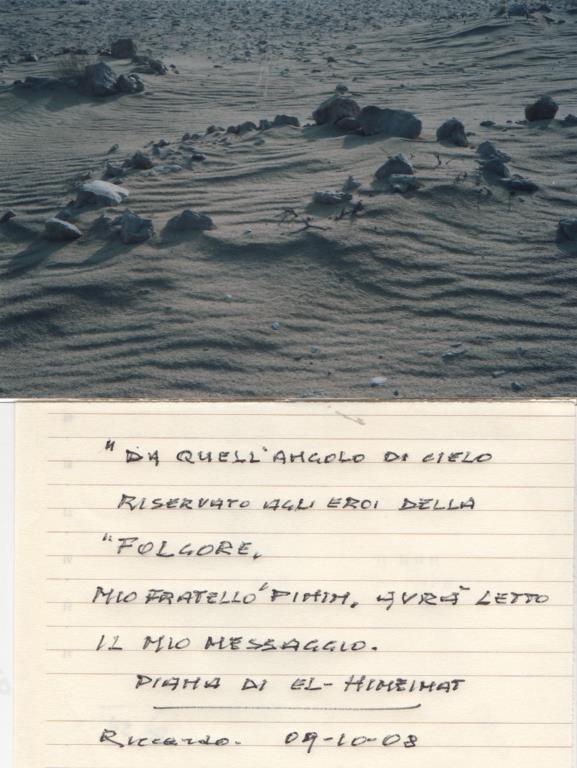 "DA QUELL'ANGOLO DI CIELO
RISERVATO AGLI EROI DELLA
"FOLGORE,
MIO FRATELLO "PININ, AVRÀ LETTO
IL MIO MESSAGGIO.
PIANA DI EL-HIMEIMAT
Riccardo. 09-10-08